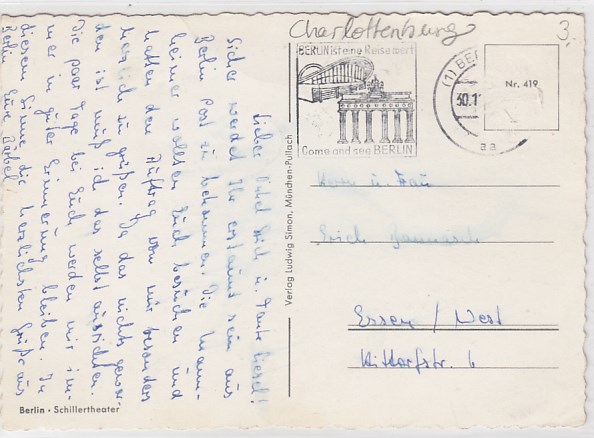 Charlottenburg
3.
BERLIN ist eine Reise wert
Come and see BERLIN
(1) BE
30.1
aa
Nr. 419
Lieber Onkel Erich u. Tante Liesel!
Sicher werdet Ihr erstaunt sein aus
Berlin Post zu bekommen. Die Mann-
heimer wollten Euch besuchen und
hatten den Auftrag von mir besonders
herzlich zu grüßen. Da das nichts gewor-
den ist muß ich das selbst ausrichten.
Die paar Tage bei Euch werden mir im-
mer in guter Erinnerung bleiben. In
diesem Sinne die herzlichsten Grüße aus
Berlin Eure Bärbel
Verlag Ludwig Simon, München-Pullach
Herrn u. Frau
Erich
Essen / West
Hittorfstr. 6
Berlin • Schillertheater